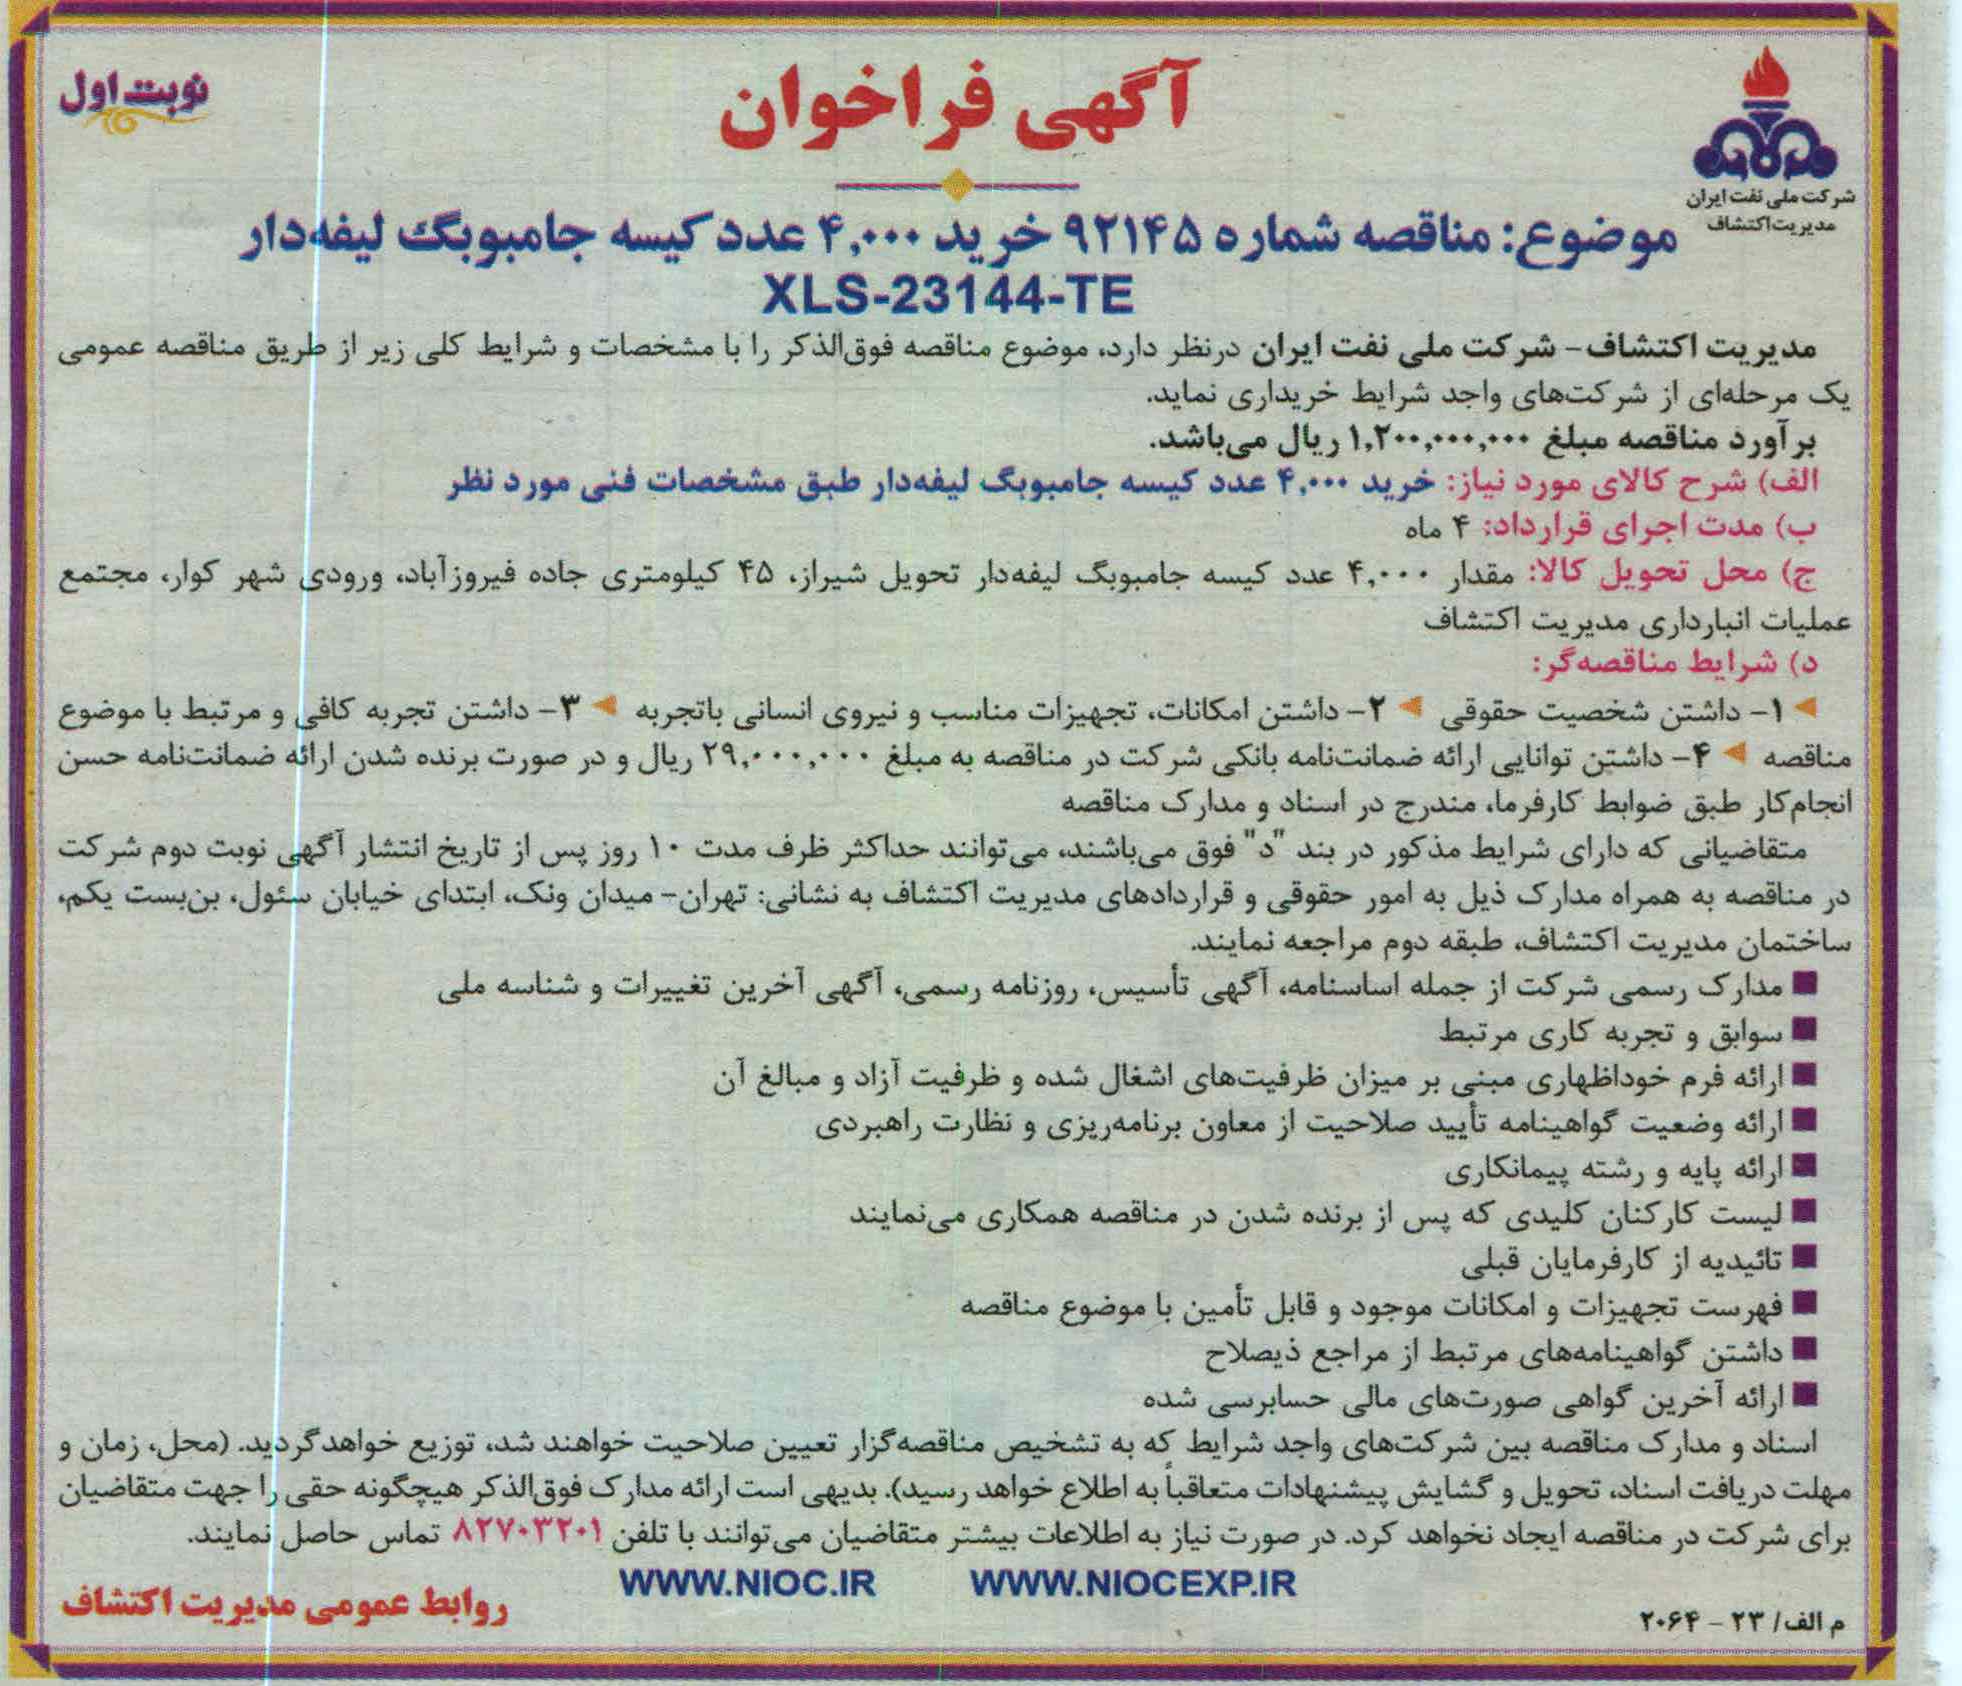 آگهی فراخوان
نوبت اول
شرکت ملی نفت ایران
مدیریت اکتشاف
موضوع: مناقصه شماره ۹۲۱۴۵ خرید ۴,۰۰۰ عدد کیسه جامبوبگ لیفه‌دار
XLS-23144-TE
مدیریت اکتشاف- شرکت ملی نفت ایران درنظر دارد، موضوع مناقصه فوق‌الذکر را با مشخصات و شرایط کلی زیر از طریق مناقصه عمومی
یک مرحله‌ای از شرکت‌های واجد شرایط خریداری نماید.
برآورد مناقصه مبلغ ۱,۲۰۰,۰۰۰,۰۰۰ ریال می‌باشد.
الف) شرح کالای مورد نیاز: خرید ۴,۰۰۰ عدد کیسه جامبوبگ لیفه‌دار طبق مشخصات فنی مورد نظر
ب) مدت اجرای قرارداد: ۴ ماه
ج) محل تحویل کالا: مقدار ۴,۰۰۰ عدد کیسه جامبوبگ لیفه‌دار تحویل شیراز، ۴۵ کیلومتری جاده فیروزآباد، ورودی شهر کوار، مجتمع
عملیات انبارداری مدیریت اکتشاف
د) شرایط مناقصه‌گر:
۱- داشتن شخصیت حقوقی ۲- داشتن امکانات، تجهیزات مناسب و نیروی انسانی باتجربه ۳- داشتن تجربه کافی و مرتبط با موضوع
مناقصه ۴- داشتن توانایی ارائه ضمانت‌نامه بانکی شرکت در مناقصه به مبلغ ۲۹,۰۰۰,۰۰۰ ریال و در صورت برنده شدن ارائه ضمانت‌نامه حسن
انجام‌کار طبق ضوابط کارفرما، مندرج در اسناد و مدارک مناقصه
متقاضیانی که دارای شرایط مذکور در بند "د" فوق می‌باشند، می‌توانند حداکثر ظرف مدت ۱۰ روز پس از تاریخ انتشار آگهی نوبت دوم شرکت
در مناقصه به همراه مدارک ذیل به امور حقوقی و قراردادهای مدیریت اکتشاف به نشانی: تهران- میدان ونک، ابتدای خیابان سئول، بن‌بست یکم،
ساختمان مدیریت اکتشاف، طبقه دوم مراجعه نمایند.
■ مدارک رسمی شرکت از جمله اساسنامه، آگهی تأسیس، روزنامه رسمی، آگهی آخرین تغییرات و شناسه ملی
■ سوابق و تجربه کاری مرتبط
■ ارائه فرم خوداظهاری مبنی بر میزان ظرفیت‌های اشغال شده و ظرفیت آزاد و مبالغ آن
■ ارائه وضعیت گواهینامه تأیید صلاحیت از معاون برنامه‌ریزی و نظارت راهبردی
■ ارائه پایه و رشته پیمانکاری
■ لیست کارکنان کلیدی که پس از برنده شدن در مناقصه همکاری می‌نمایند
■ تائیدیه از کارفرمایان قبلی
■ فهرست تجهیزات و امکانات موجود و قابل تأمین با موضوع مناقصه
■ داشتن گواهینامه‌های مرتبط از مراجع ذیصلاح
■ ارائه آخرین گواهی صورت‌های مالی حسابرسی شده
اسناد و مدارک مناقصه بین شرکت‌های واجد شرایط که به تشخیص مناقصه‌گزار تعیین صلاحیت خواهند شد، توزیع خواهدگردید. (محل، زمان و
مهلت دریافت اسناد، تحویل و گشایش پیشنهادات متعاقباً به اطلاع خواهد رسید). بدیهی است ارائه مدارک فوق‌الذکر هیچگونه حقی را جهت متقاضیان
برای شرکت در مناقصه ایجاد نخواهد کرد. در صورت نیاز به اطلاعات بیشتر متقاضیان می‌توانند با تلفن ۸۲۷۰۳۲۰۱ تماس حاصل نمایند.
WWW.NIOC.IR WWW.NIOCEXP.IR
روابط عمومی مدیریت اکتشاف
م الف/ ۲۳ - ۲۰۶۴